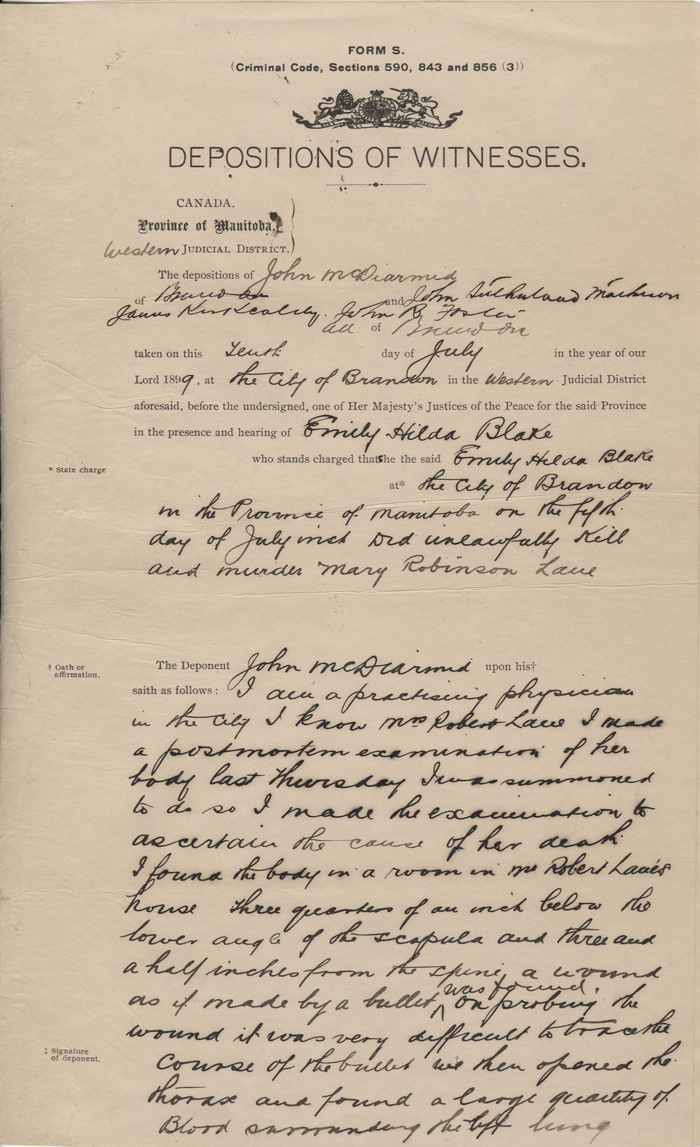 FORM S.
(Criminal Code, Sections 590, 843 and 856 (3))
DEPOSITIONS OF WITNESSES.
CANADA.
Province of Manitoba,
Western JUDICIAL DISTRICT.
The depositions of John McDiarmid
of Brandon and John Sutherland Matheson
James Kirkcaldy. John R Foster
all of Brandon
taken on this Tenth day of July in the year of our
Lord 1899, at the City of Brandon in the Western Judicial District
aforesaid, before the undersigned, one of Her Majesty's Justices of the Peace for the said Province
in the presence and hearing of Emily Hilda Blake
who stands charged that she the said Emily Hilda Blake
* State charge
at* the City of Brandon
in the Province of Manitoba on the fifth
day of July inst Did unlawfully Kill
and murder Mary Robinson Lane
† Oath or
affirmation.
The Deponent John McDiarmid upon his†
saith as follows: I am a practising physician
in the City I know Mrs Robert Lane I made
a postmortem examination of her
body last Thursday I was summoned
to do so I made the examination to
ascertain the cause of her death
I found the body in a room in Mr Robert Lane's
house Three quarters of an inch below the
lower angle of the scapula and three and
a half inches from the spine, a wound
as if made by a bullet, was found. On probing the
wound it was very difficult to trace the
‡ Signature
of deponent.
course of the bullet we then opened the
thorax and found a large quantity of
Blood surrounding the left lung